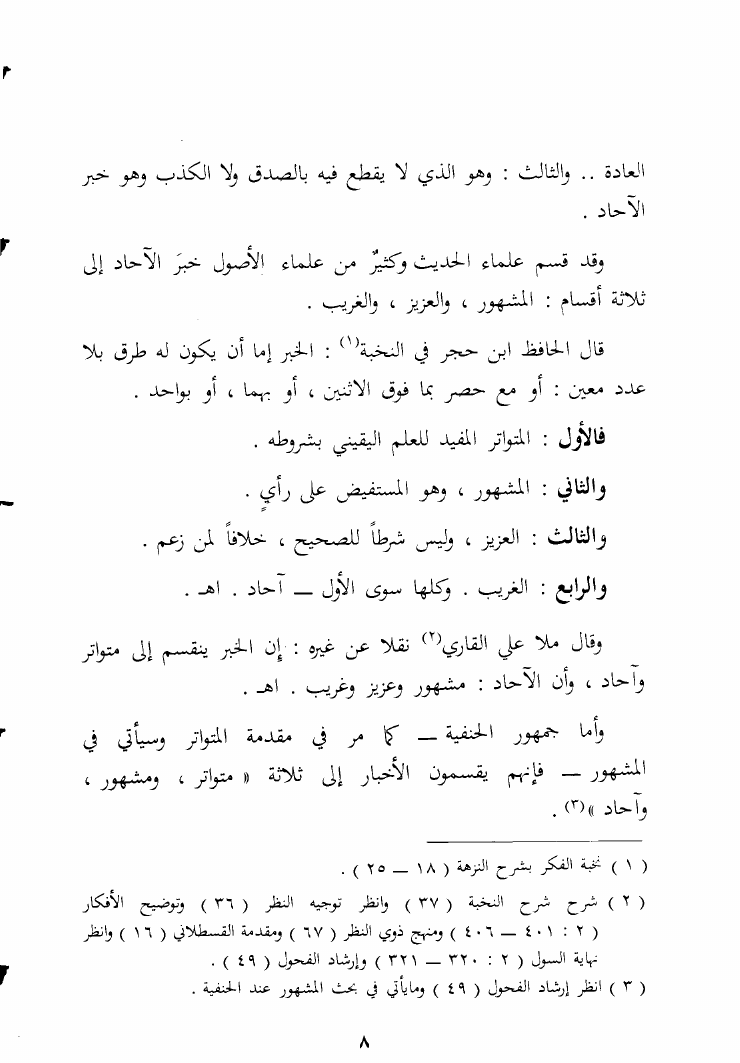 العادة .. والثالث : وهو الذي لا يقطع فيه بالصدق ولا الكذب وهو خبر
الآحاد .
وقد قسم علماء الحديث وكثيرٌ من علماء الأصول خبرَ الآحاد إلى
ثلاثة أقسام : المشهور ، والعزيز ، والغريب .
قال الحافظ ابن حجر في النخبة(١) : الخبر إما أن يكون له طرق بلا
عدد معين : أو مع حصر بما فوق الاثنين ، أو بهما ، أو بواحد .
فالأول : المتواتر المفيد للعلم اليقيني بشروطه .
والثاني : المشهور ، وهو المستفيض على رأيٍ .
والثالث : العزيز ، وليس شرطاً للصحيح ، خلافاً لمن زعم .
والرابع : الغريب . وكلها سوى الأول — آحاد . اهـ .
وقال ملا علي القاري(٢) نقلا عن غيره : إن الخبر ينقسم إلى متواتر
وآحاد ، وأن الآحاد : مشهور وعزيز وغريب . اهـ .
وأما جمهور الحنفية — كما مر في مقدمة المتواتر وسيأتي في
المشهور — فإنهم يقسمون الأخبار إلى ثلاثة « متواتر ، ومشهور ،
وآحاد »(٣) .
( ١ ) نخبة الفكر بشرح النزهة ( ١٨ — ٢٥ ) .
( ٢ ) شرح شرح النخبة ( ٣٧ ) وانظر توجيه النظر ( ٣٦ ) وتوضيح الأفكار
( ٢ : ٤٠١ — ٤٠٦ ) ومنهج ذوي النظر ( ٦٧ ) ومقدمة القسطلاني ( ١٦ ) وانظر
نهاية السول ( ٢ : ٣٢٠ — ٣٢١ ) وإرشاد الفحول ( ٤٩ ) .
( ٣ ) انظر إرشاد الفحول ( ٤٩ ) ومايأتي في بحث المشهور عند الحنفية .
٨